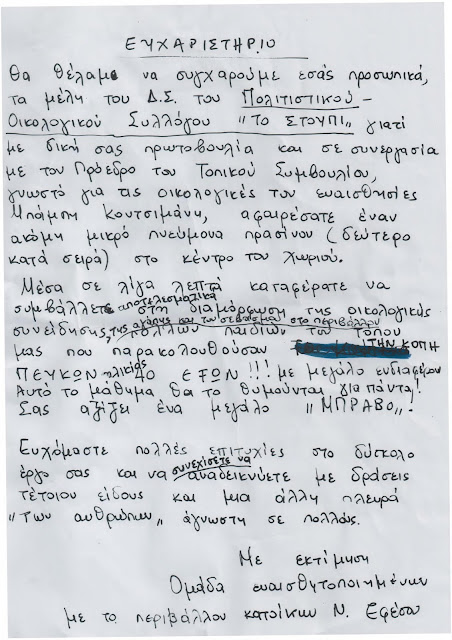 ΕΥΧΑΡΙΣΤΗΡΙΟ
Θα θέλαμε να συγχαρούμε εσάς προσωπικά,
τα μέλη του Δ.Σ. του Πολιτιστικού -
Οικολογικού Συλλόγου "ΤΟ ΣΤΟΥΠΙ" γιατί
με δική σας πρωτοβουλία και σε συνεργασία
με τον Πρόεδρο του Τοπικού Συμβουλίου,
γνωστό για τις οικολογικές του ευαισθησίες
Μπάμπη Κουτσιμάνη, αφαιρέσατε έναν
ακόμη μικρό πνεύμονα πρασίνου (δεύτερο
κατά σειρά) στο κέντρο του χωριού.
Μέσα σε λίγα λεπτά καταφέρατε να
συμβάλλετε αποτελεσματικά στη διαμόρφωση της οικολογικής
συνείδησης, της αγάπης και του σεβασμού στο περιβάλλον
πολλών παιδιών του τόπου
μας που παρακολουθούσαν ΤΗΝ ΚΟΠΗ
ΠΕΥΚΩΝ ηλικίας 40 ΕΤΩΝ!!! με μεγάλο ενδιαφέρον
Αυτό το μάθημα θα το θυμούνται για πάντα!
Σας αξίζει ένα μεγάλο "ΜΠΡΑΒΟ".
Ευχόμαστε πολλές επιτυχίες στο δύσκολο
έργο σας και να συνεχίσετε να αναδεικνύετε με δράσεις
τέτοιου είδους και μια άλλη πλευρά
"των ανθρώπων" άγνωστη σε πολλούς.
Με εκτίμηση
Ομάδα ευαισθητοποιημένων
με το περιβάλλον κατοίκων Ν. Εφέσου